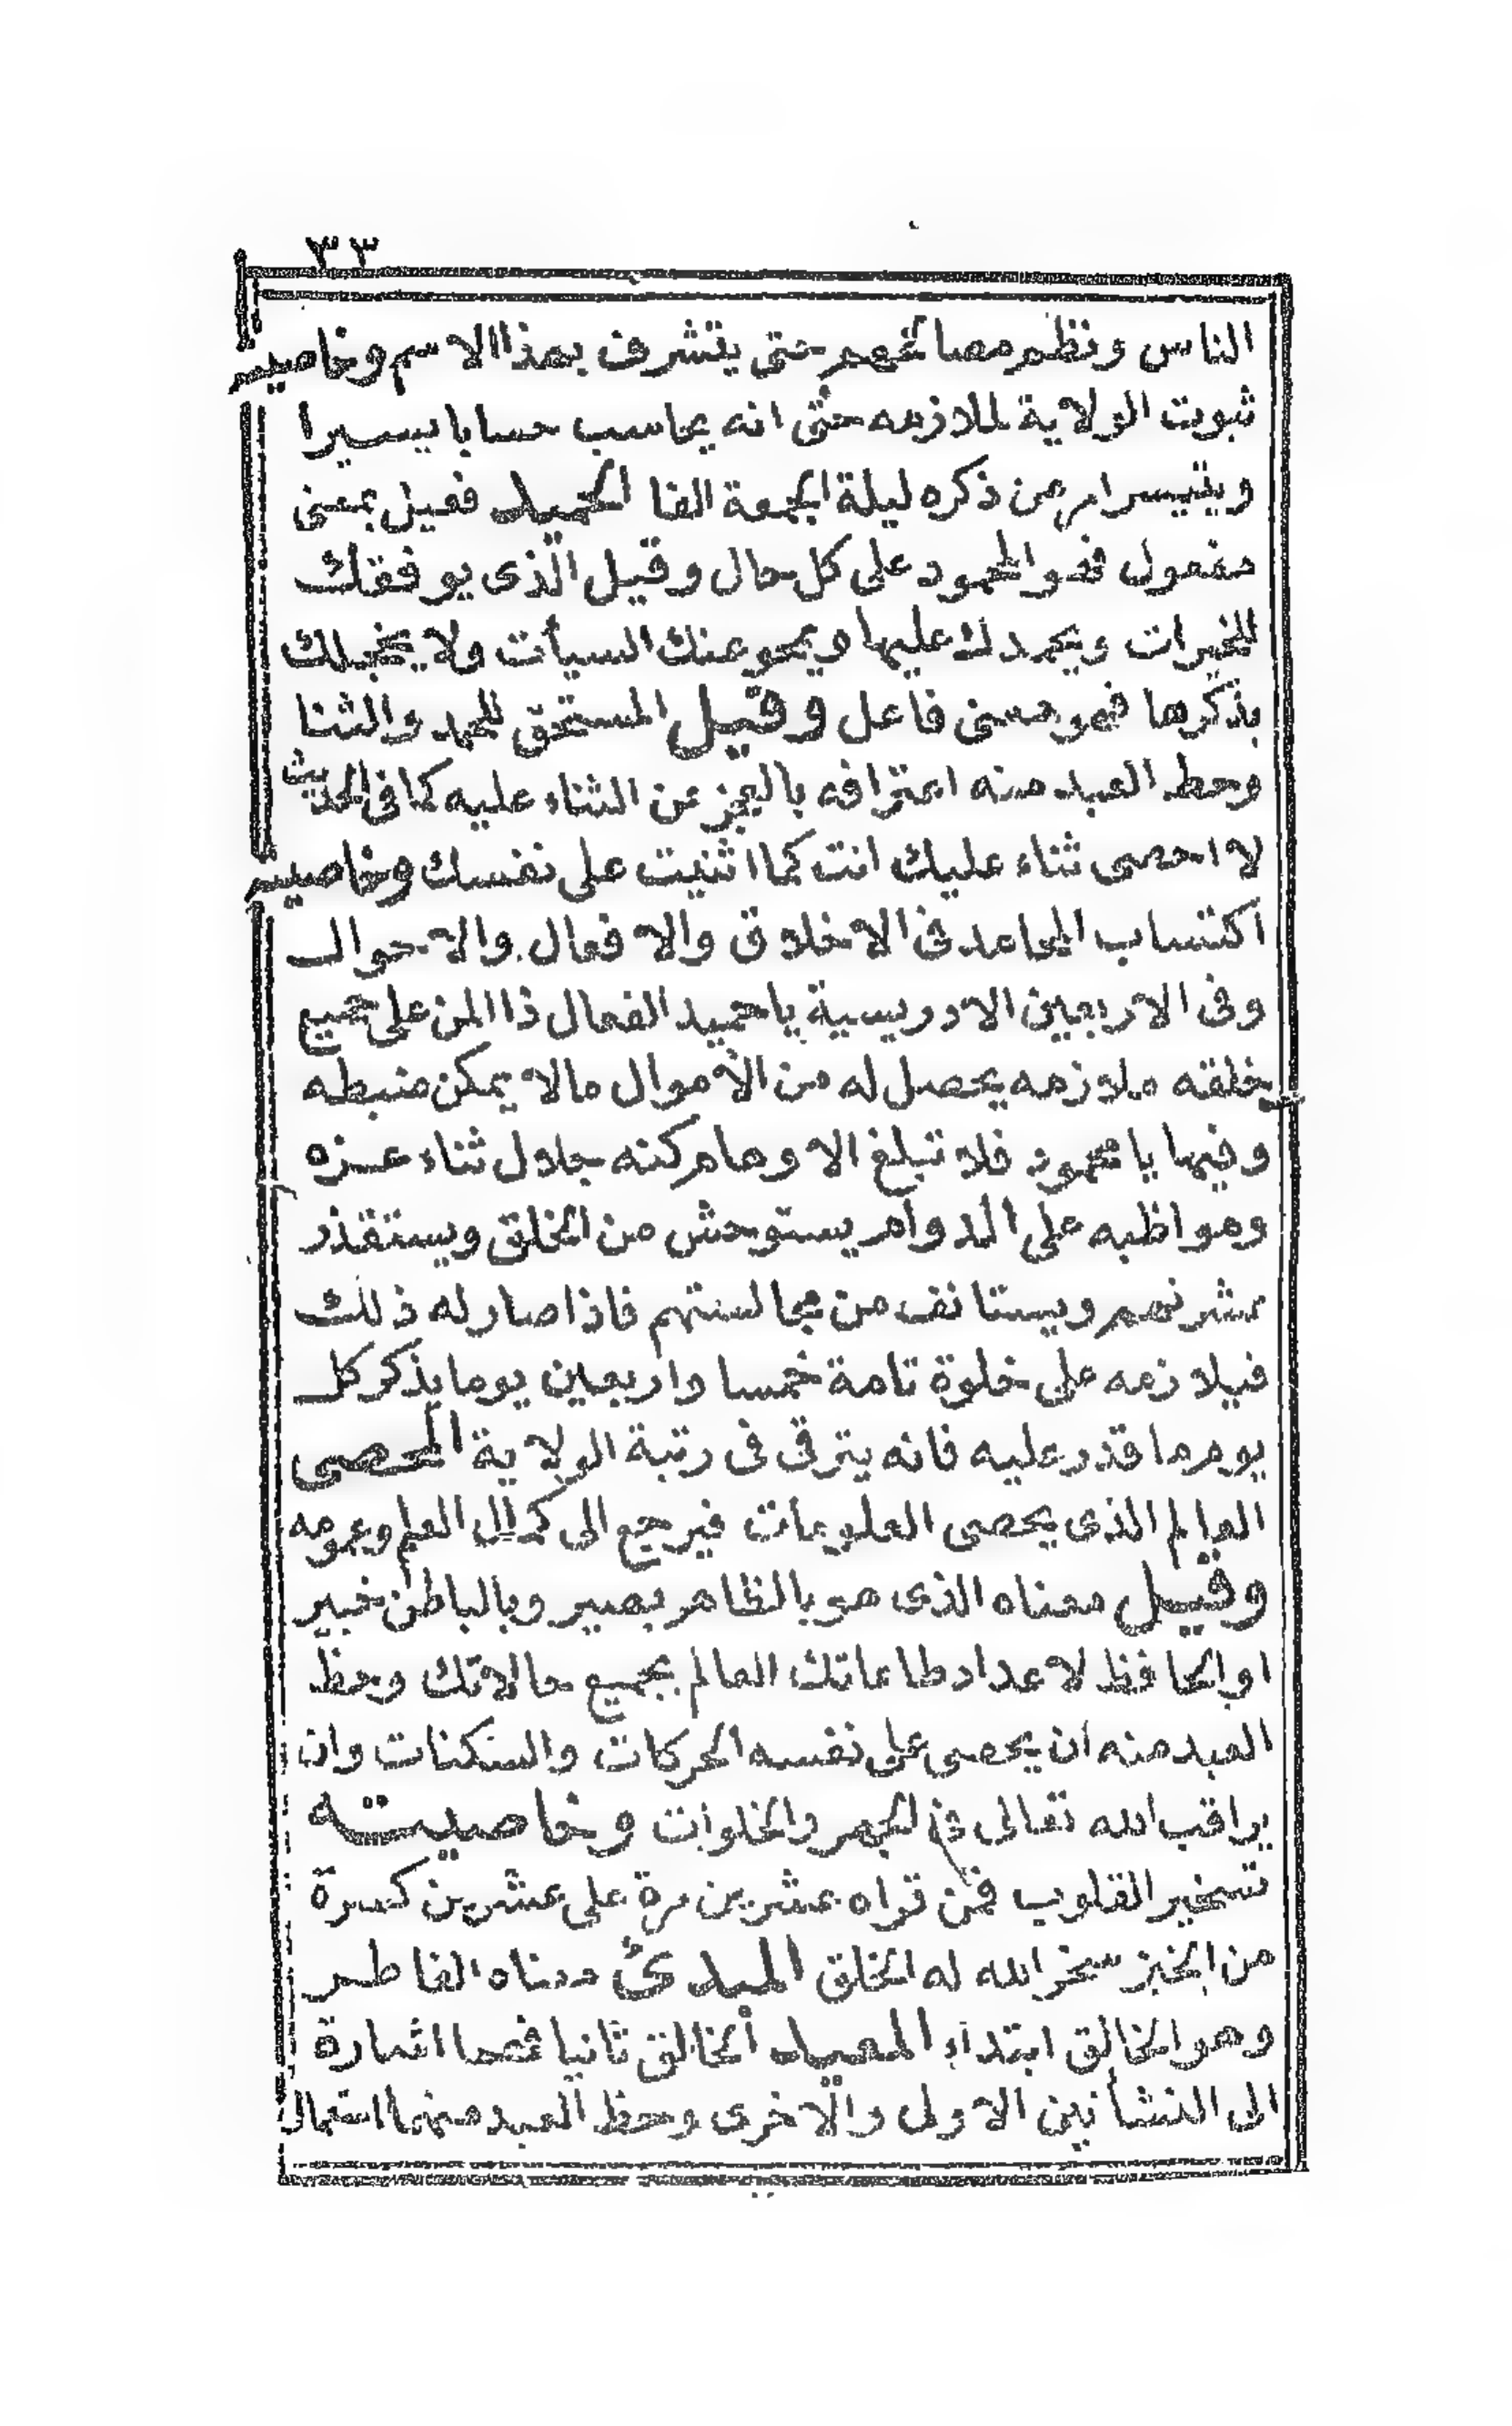 ٣٣
الناس ونظم مصالحهم حتى يتشرف بهذا الاسم وخاصيته
ثبوت الولاية لملازمه حتى انه يحاسب حسابا يسيرا
ويتيسر امر من ذكره ليلة الجمعة الفا الحميد فعيل بمعنى
مفعول فهو المحمود على كل حال وقيل الذى يوفقك
للخيرات ويحمدك عليها ويمحو عنك السيأت ولا يخجلك
بذكرها فهو معنى فاعل وقيل المستحق للحمد والثنا
وحظ العبد منه اعترافه بالعجز عن الثناء عليه كما فى الحديث
لا احصى ثناء عليك انت كما اثنيت على نفسك وخاصيته
اكتساب المحامد فى الاخلاق والافعال والاحوال
وفى الاربعين الادريسية يا حميد الفعال ذا المن على جميع
خلقه ملازمه يحصل له من الأموال مالا يمكن ضبطه
وفيها يا محمود فلا تبلغ الاوهام كنه جلال ثناء عزه
ومواظبه على الدوام يستوحش من الخلق ويستقذر
عشرتهم ويستانف من مجالستهم فاذا صار له ذلك
فيلازمه على خلوة تامة خمسا واربعين يوما يذكر كل
يوم ما قدر عليه فانه يترقى فى رتبة الولاية المحصى
العالم الذى يحصى المعلومات فيرجع الى كمال العلم وعمومه
وقيل معناه الذى هو بالظاهر بصير وبالباطن خبير
او الحافظ لاعداد طاعاتك العالم بجميع حالاتك وحظ
العبد منه ان يحصى على نفسه الحركات والسكنات وان
يراقب الله تعالى فى الجهر والخلوات وخاصيته
تسخير القلوب فمن قراه عشرين مرة على عشرين كسرة
من الخبز سخر الله له الخلق المبدئ معناه الفاطر
وهو الخالق ابتداء المعيد الخالق ثانيا فهما اشارة
الى النشأتين الاولى والاخرى وحظ العبد منهما استعمال